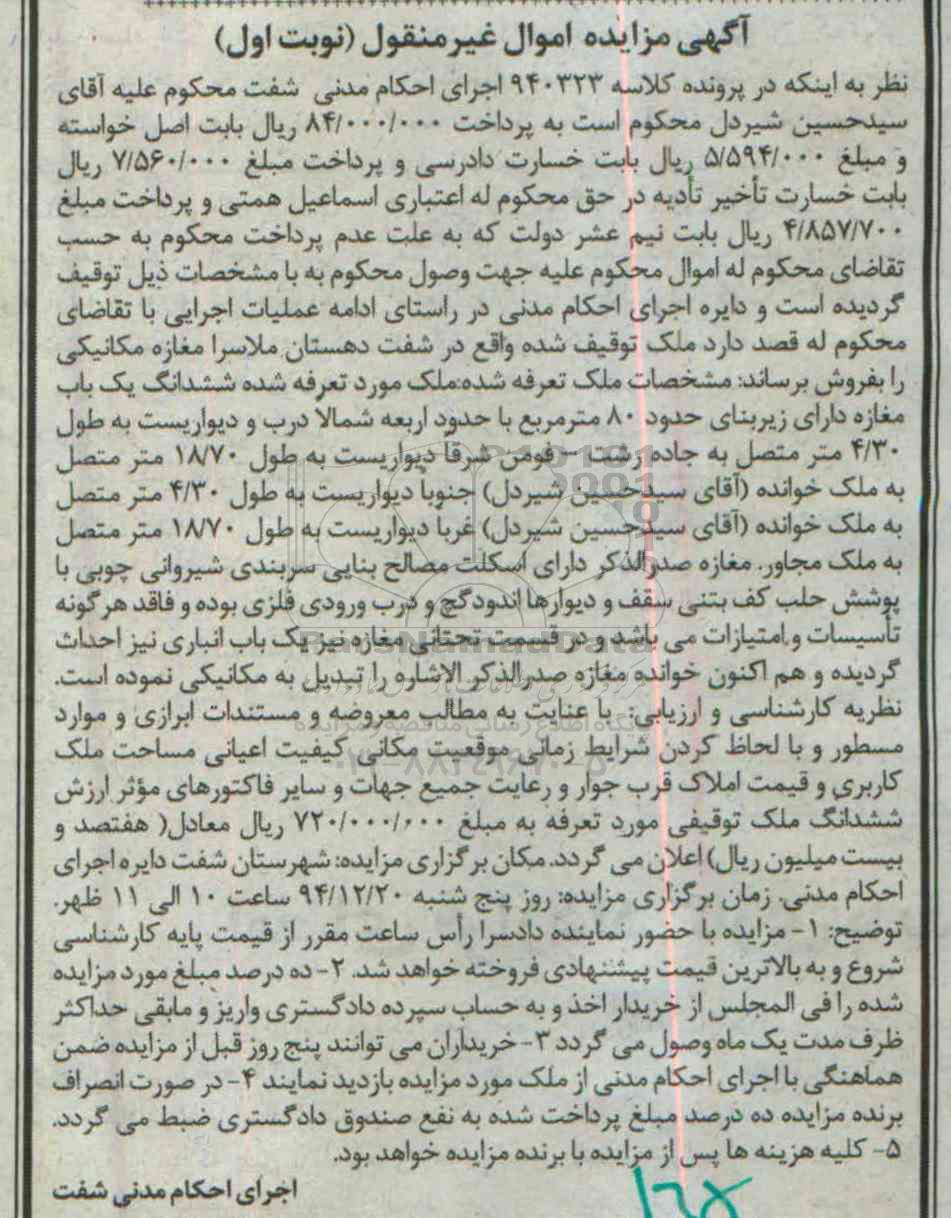 آگهی مزایده اموال غیرمنقول (نوبت اول)
نظر به اینکه در پرونده کلاسه ۹۴۰۳۲۳ اجرای احکام مدنی شفت محکوم علیه آقای
سیدحسین شیردل محکوم است به پرداخت ۸۴/۰۰۰/۰۰۰ ریال بابت اصل خواسته
و مبلغ ۵/۵۹۴/۰۰۰ ریال بابت خسارت دادرسی و پرداخت مبلغ ۷/۵۶۰/۰۰۰ ریال
بابت خسارت تأخیر تأدیه در حق محکوم له اعتباری اسماعیل همتی و پرداخت مبلغ
۴/۸۵۷/۷۰۰ ریال بابت نیم عشر دولت که به علت عدم پرداخت محکوم به حسب
تقاضای محکوم له اموال محکوم علیه جهت وصول محکوم به با مشخصات ذیل توقیف
گردیده است و دایره اجرای احکام مدنی در راستای ادامه عملیات اجرایی با تقاضای
محکوم له قصد دارد ملک توقیف شده واقع در شفت دهستان ملاسرا مغازه مکانیکی
را بفروش برساند: مشخصات ملک تعرفه شده:ملک مورد تعرفه شده ششدانگ یک باب
مغازه دارای زیربنای حدود ۸۰ مترمربع با حدود اربعه شمالاً درب و دیواریست به طول
۴/۳۰ متر متصل به جاده رشت - فومن شرقاً دیواریست به طول ۱۸/۷۰ متر متصل
به ملک خوانده (آقای سیدحسین شیردل) جنوباً دیواریست به طول ۴/۳۰ متر متصل
به ملک خوانده (آقای سیدحسین شیردل) غرباً دیواریست به طول ۱۸/۷۰ متر متصل
به ملک مجاور. مغازه صدرالذکر دارای اسکلت مصالح بنایی سربندی شیروانی چوبی با
پوشش حلب کف بتنی سقف و دیوارها اندودگچ و درب ورودی فلزی بوده و فاقد هرگونه
تأسیسات و امتیازات می باشد و در قسمت تحتانی مغازه نیز یک باب انباری نیز احداث
گردیده و هم اکنون خوانده مغازه صدرالذکر الاشاره را تبدیل به مکانیکی نموده است.
نظریه کارشناسی و ارزیابی: با عنایت به مطالب معروضه و مستندات ابرازی و موارد
مسطور و با لحاظ کردن شرایط زمانی موقعیت مکانی کیفیت اعیانی مساحت ملک
کاربری و قیمت املاک قرب جوار و رعایت جمیع جهات و سایر فاکتورهای مؤثر ارزش
ششدانگ ملک توقیفی مورد تعرفه به مبلغ ۷۲۰/۰۰۰/۰۰۰ ریال معادل( هفتصد و
بیست میلیون ریال) اعلان می گردد. مکان برگزاری مزایده: شهرستان شفت دایره اجرای
احکام مدنی. زمان برگزاری مزایده: روز پنج شنبه ۹۴/۱۲/۲۰ ساعت ۱۰ الی ۱۱ ظهر.
توضیح: ۱- مزایده با حضور نماینده دادسرا رأس ساعت مقرر از قیمت پایه کارشناسی
شروع و به بالاترین قیمت پیشنهادی فروخته خواهد شد. ۲- ده درصد مبلغ مورد مزایده
شده را فی المجلس از خریدار اخذ و به حساب سپرده دادگستری واریز و مابقی حداکثر
ظرف مدت یک ماه وصول می گردد ۳- خریداران می توانند پنج روز قبل از مزایده ضمن
هماهنگی با اجرای احکام مدنی از ملک مورد مزایده بازدید نمایند ۴- در صورت انصراف
برنده مزایده ده درصد مبلغ پرداخت شده به نفع صندوق دادگستری ضبط می گردد.
۵- کلیه هزینه ها پس از مزایده با برنده مزایده خواهد بود.
اجرای احکام مدنی شفت